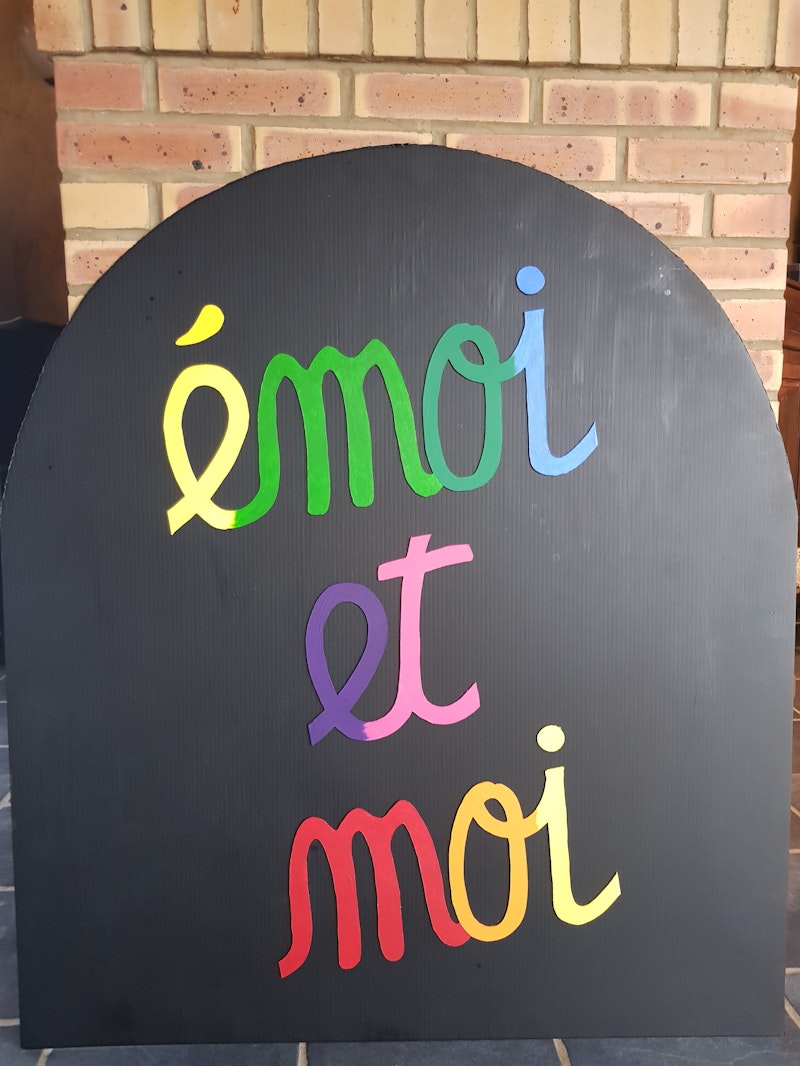 émoi
et
moi